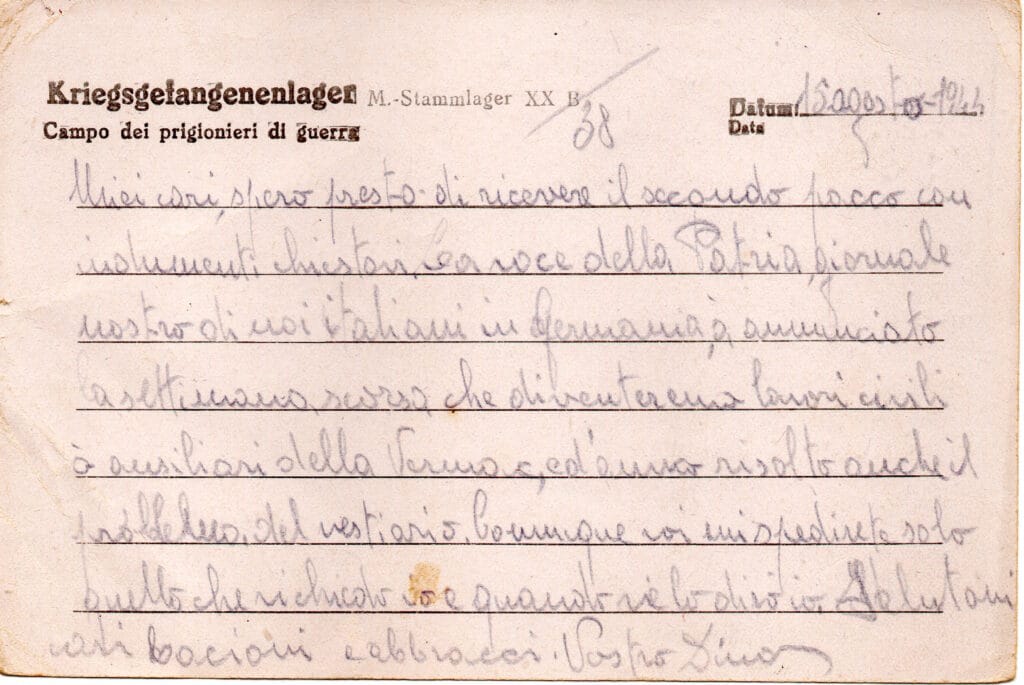 Kriegsgefangenenlager M.-Stammlager XX B
38
Datum: 15 agosto-1944
Campo dei prigionieri di guerra
Data
Miei cari, spero presto di ricevere il secondo pacco con
indumenti chiestovi. La voce della Patria, giornale
nostro di noi italiani in Germania, à annunciato
la settimana scorsa che diventeremo lavori civili
ò ausiliari della Vermac, ed anno risolto anche il
problema del vestiario. Comunque voi mi spedirete solo
quello che richiedo io e quando ve lo dirò io. Salutoni
cari bacioni e abbracci. Vostro Dino